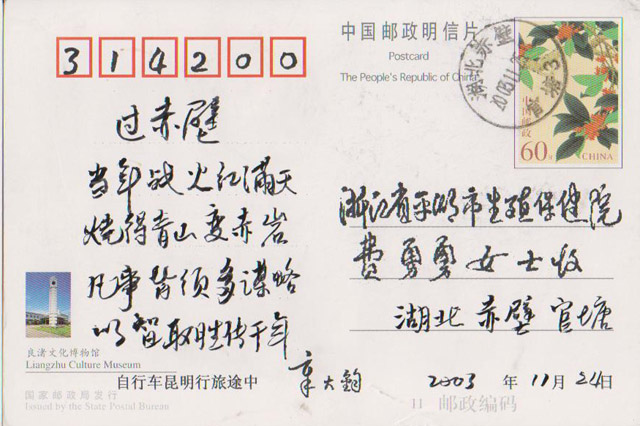 314200
中国邮政明信片
Postcard
The People's Republic of China
湖北赤壁
2003.11.2
官塘
中国邮政
60分
CHINA
过赤壁
当年战火红满天
烧得青山变赤岩
凡事皆须多谋略
以智取胜传千年
章大钧
浙江省平湖市生殖保健院
费勇勇女士收
湖北赤壁官塘
2003 年 11 月 24 日
良渚文化博物馆
Liangzhu Culture Museum
自行车昆明行旅途中
国家邮政局发行
Issued by the State Postal Bureau
11 邮政编码